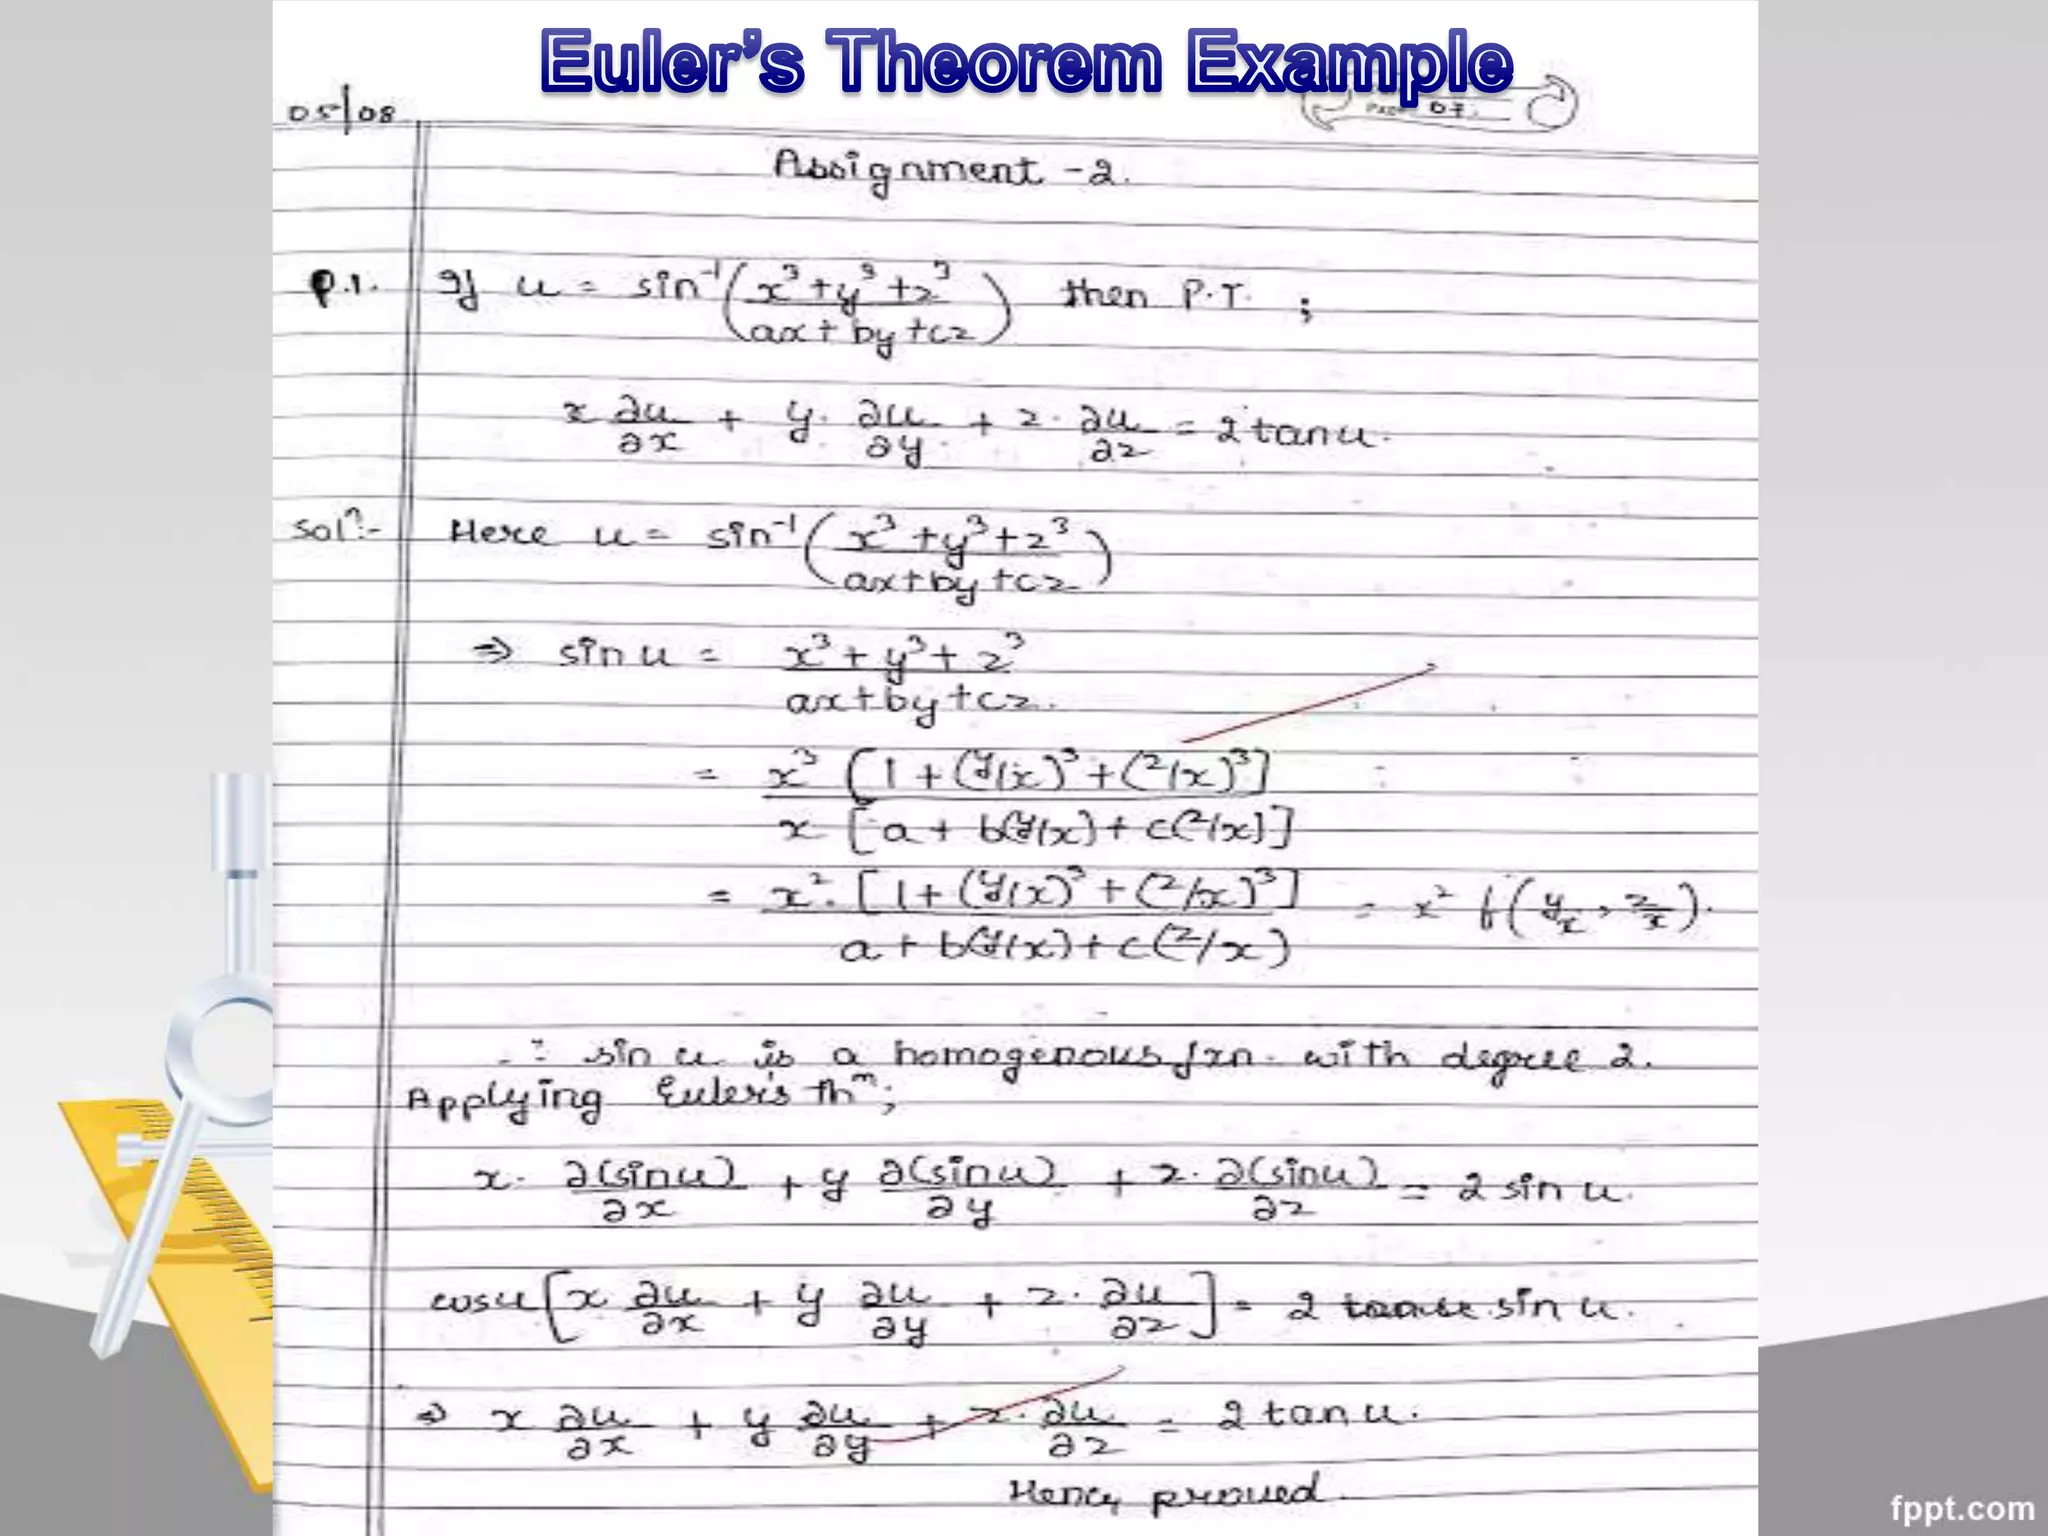 Euler's Theorem Example
05/08
PAGE 07.
Assignment - 2.
P.1. If u = sin⁻¹(x³+y³+z³ / ax+by+cz) then P.T. ;
x ∂u/∂x + y. ∂u/∂y + z. ∂u/∂z = 2 tan u.
Solⁿ:- Here u = sin⁻¹(x³+y³+z³ / ax+by+cz)
⇒ sin u = x³+y³+z³ / ax+by+cz.
= x³ [1+(y/x)³+(z/x)³] / x [a+b(y/x)+c(z/x)]
= x². [1+(y/x)³+(z/x)³] / a+b(y/x)+c(z/x) = x² f(y/x, z/x).
∴ sin u is a homogenous fxn. with degree 2.
Applying Euler's thᵐ;
x. ∂(sin u)/∂x + y ∂(sin u)/∂y + z. ∂(sin u)/∂z = 2 sin u.
cos u [x ∂u/∂x + y ∂u/∂y + z. ∂u/∂z] = 2 sin u.
⇒ x ∂u/∂x + y ∂u/∂y + z. ∂u/∂z = 2 tan u.
Hence, proved.
fppt.com